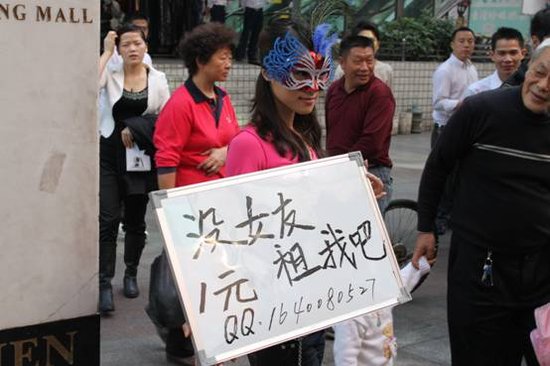 NG MALL
没女友
1元 租我吧
QQ.1640080527
MEN